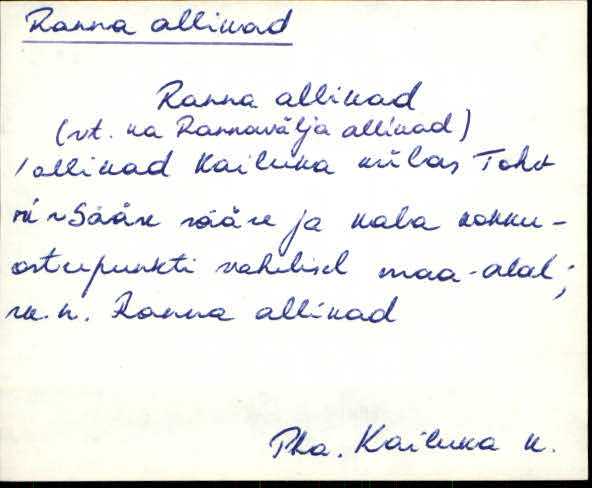 Ranna allikad
Ranna allikad
(vt. ka Rannavälja allikad)
/allikad Kailuka külas Tohv
ri ~ Sääre sääre ja kala kokku-
ostupunkti vahelisel maa-alal;
rv.n. Ranna allikad
Pha. Kailuka k.